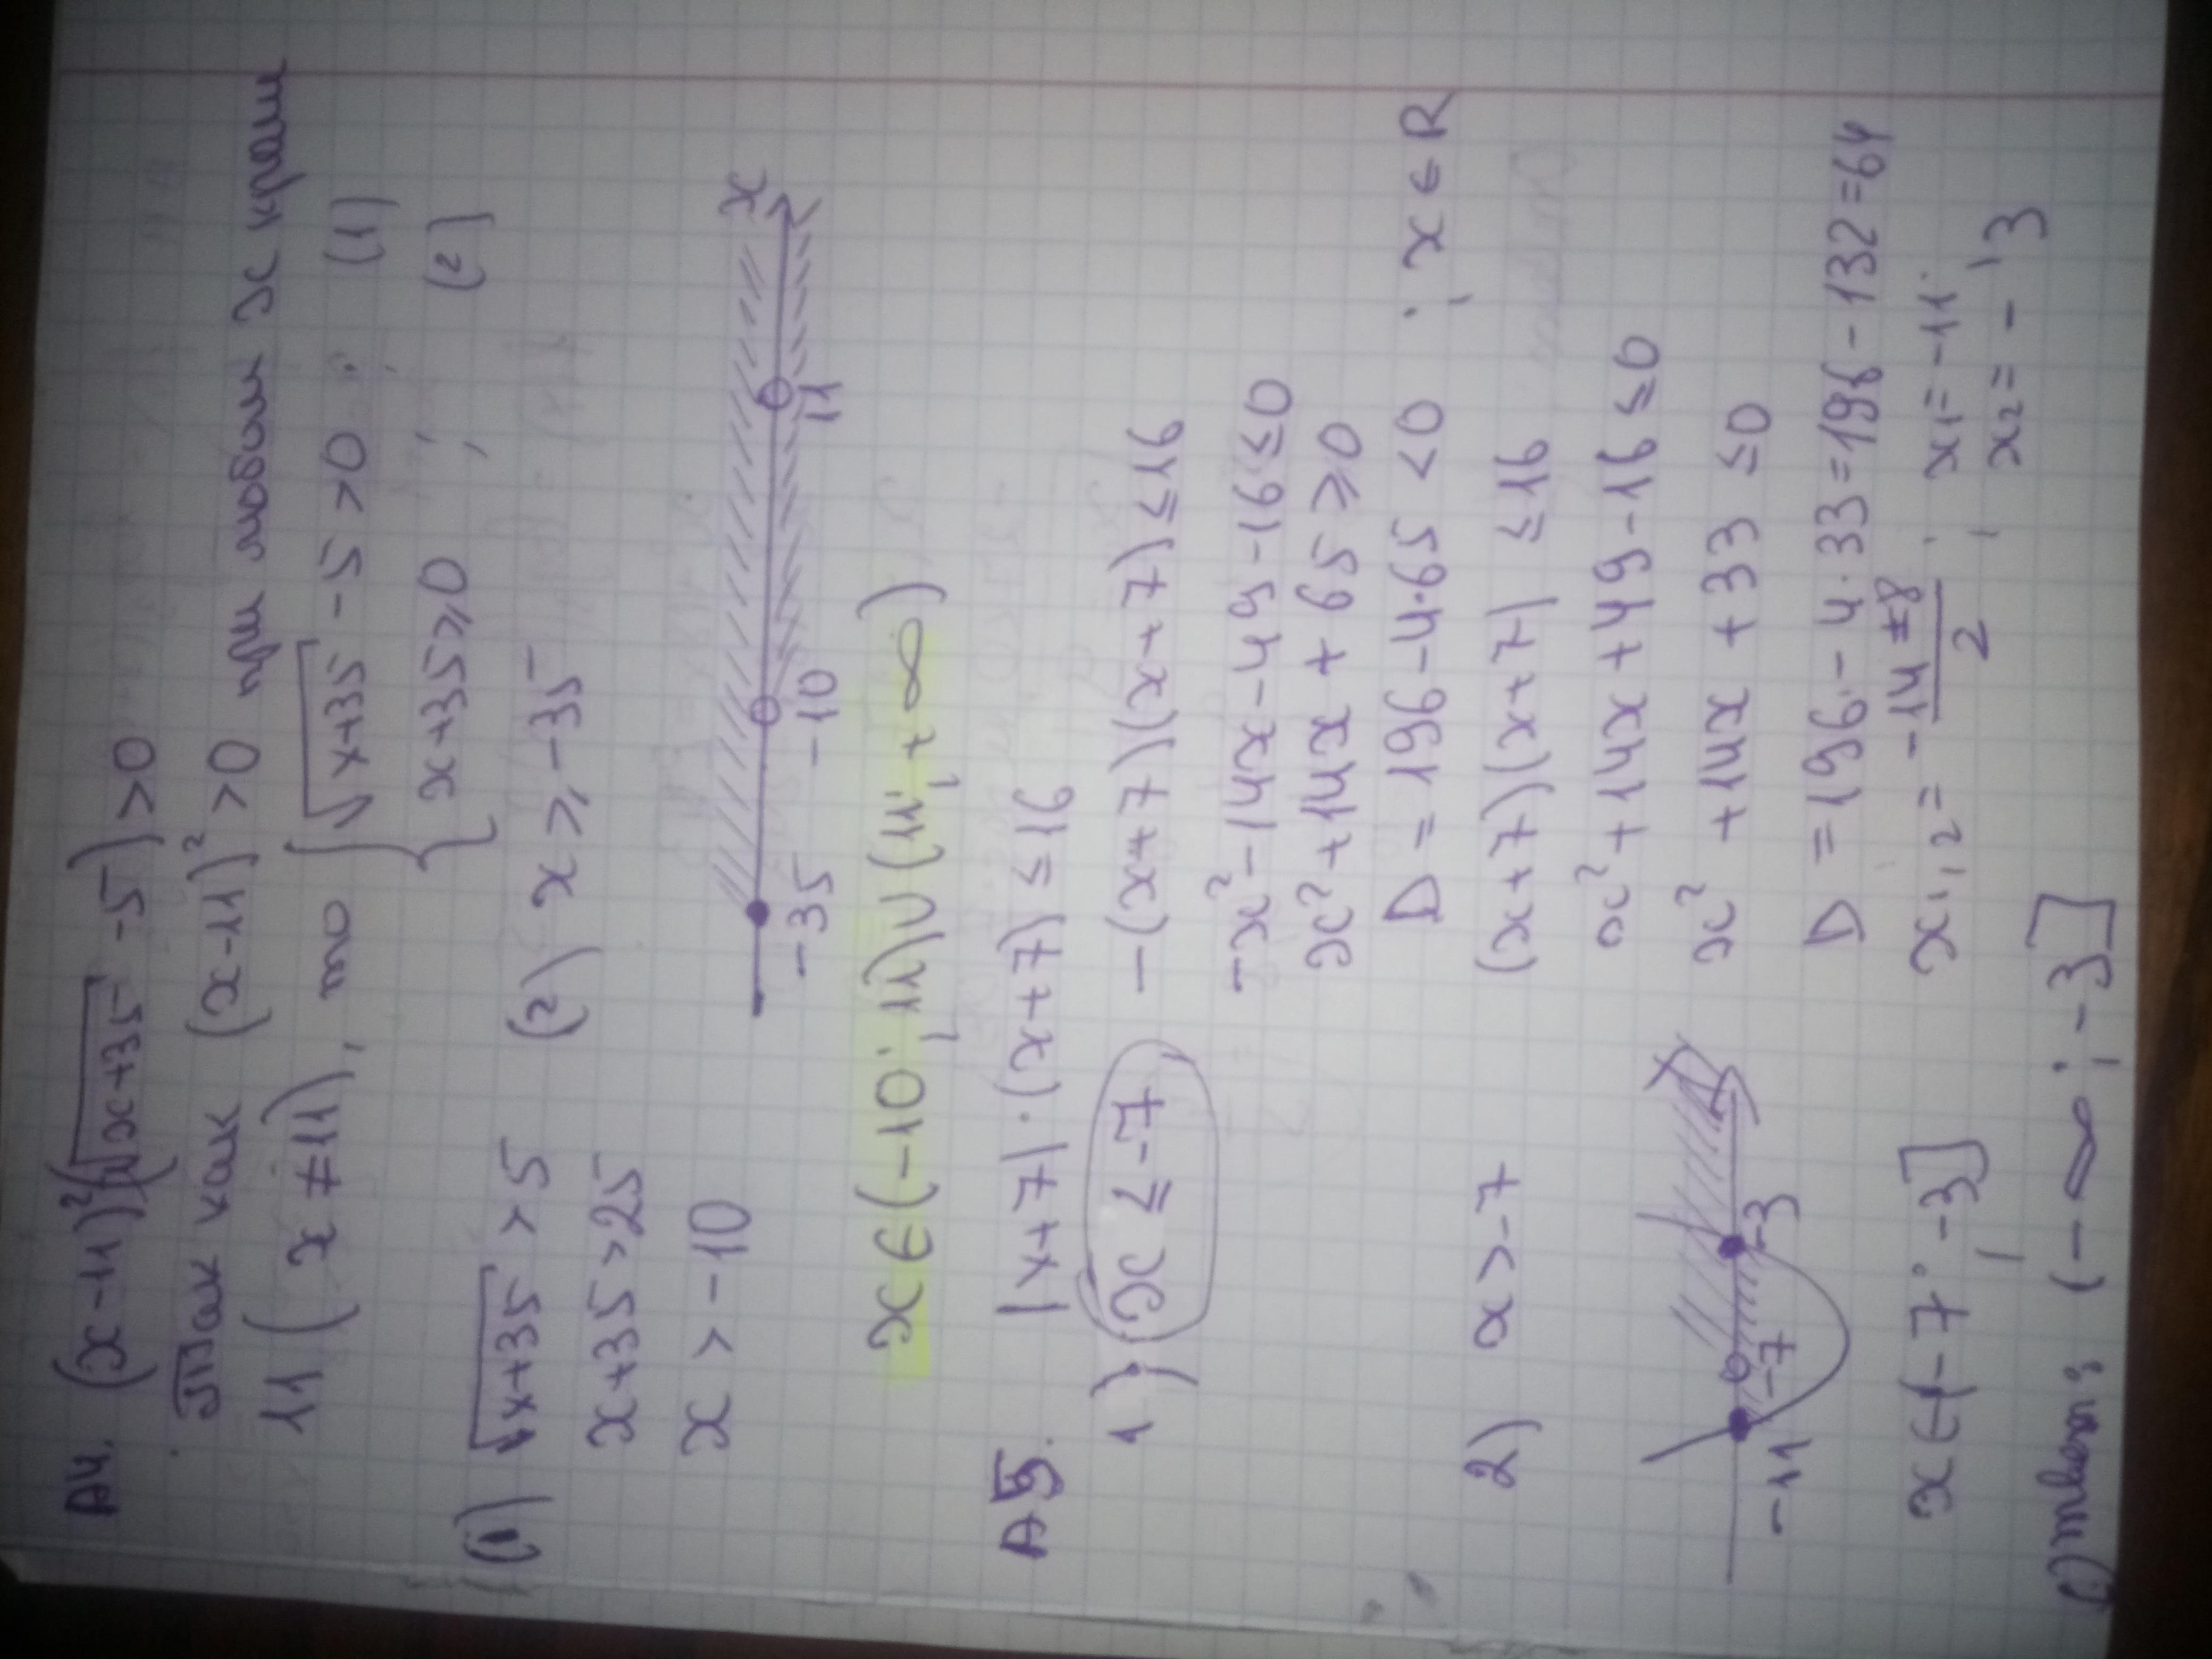 А4. (x-11)²(√x+35 -5)>0
Так как (x-11)²>0 при любом x кроме
11 (x≠11), то { √x+35 -5>0; (1)
x+35≥0 ; (2)
(1) √x+35 >5 (2) x≥-35
x+35>25
x>-10
-35 -10 11 x
x∈(-10; 11)∪(11; +∞)
А5. |x+7|·(x+7)≤16
1) x≤-7 -(x+7)(x+7)≤16
-x²-14x-49-16≤0
x²+14x+65≥0
D=196-4·65<0 ; x∈R
2) x>-7 (x+7)(x+7)≤16
x²+14x+49-16≤0
x²+14x+33≤0
D=196-4·33=196-132=64
-11 -7 -3
x₁,₂=-14±8/2 ; x₁=-11; x₂=-3
x∈(-7; -3]
Ответ: (-∞; -3]